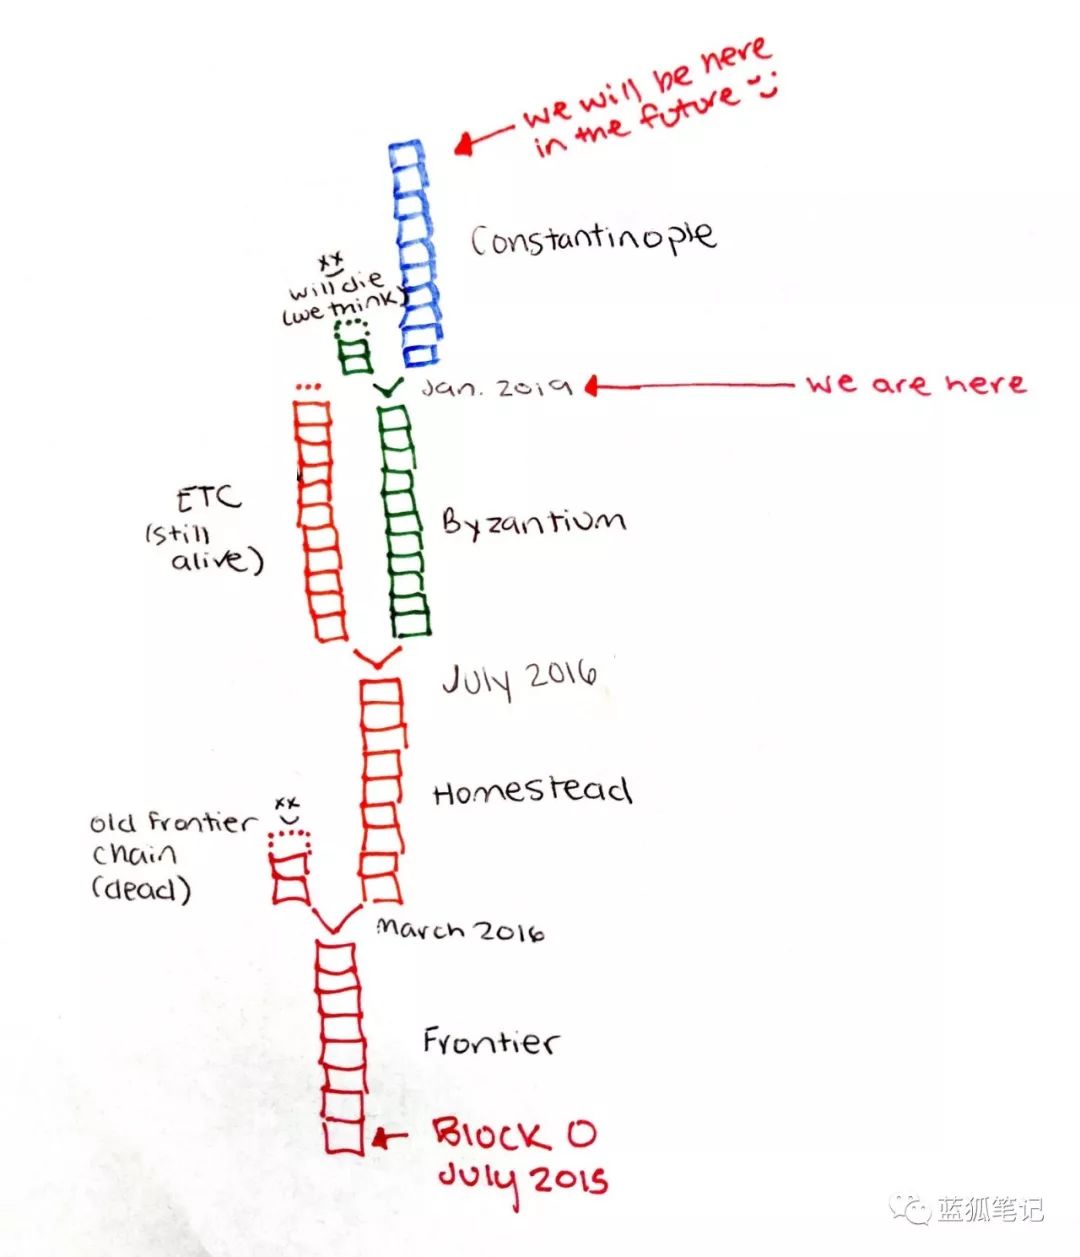 we will be here
in the future
Constantinople
xx
will die
(we think)
Jan. 2019
we are here
ETC
(still
alive)
Byzantium
July 2016
Homestead
xx
old Frontier
chain
(dead)
March 2016
Frontier
Block 0
July 2015
蓝狐笔记